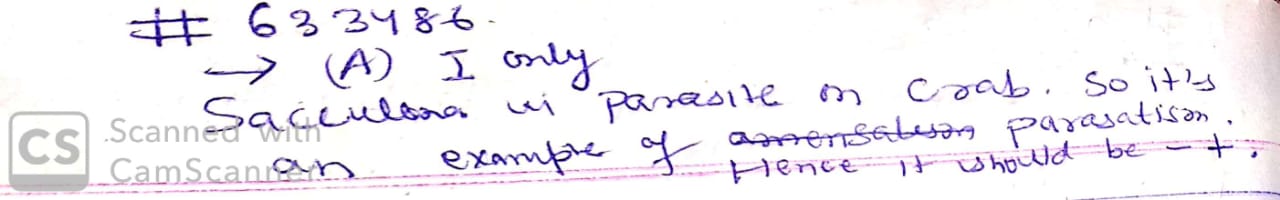 # 633486.
→ (A) I only
Sacculina is parasite on Crab. So it's
an example of amensalism parasatism.
Hence it should be - +.
CS Scanned with
CamScanner